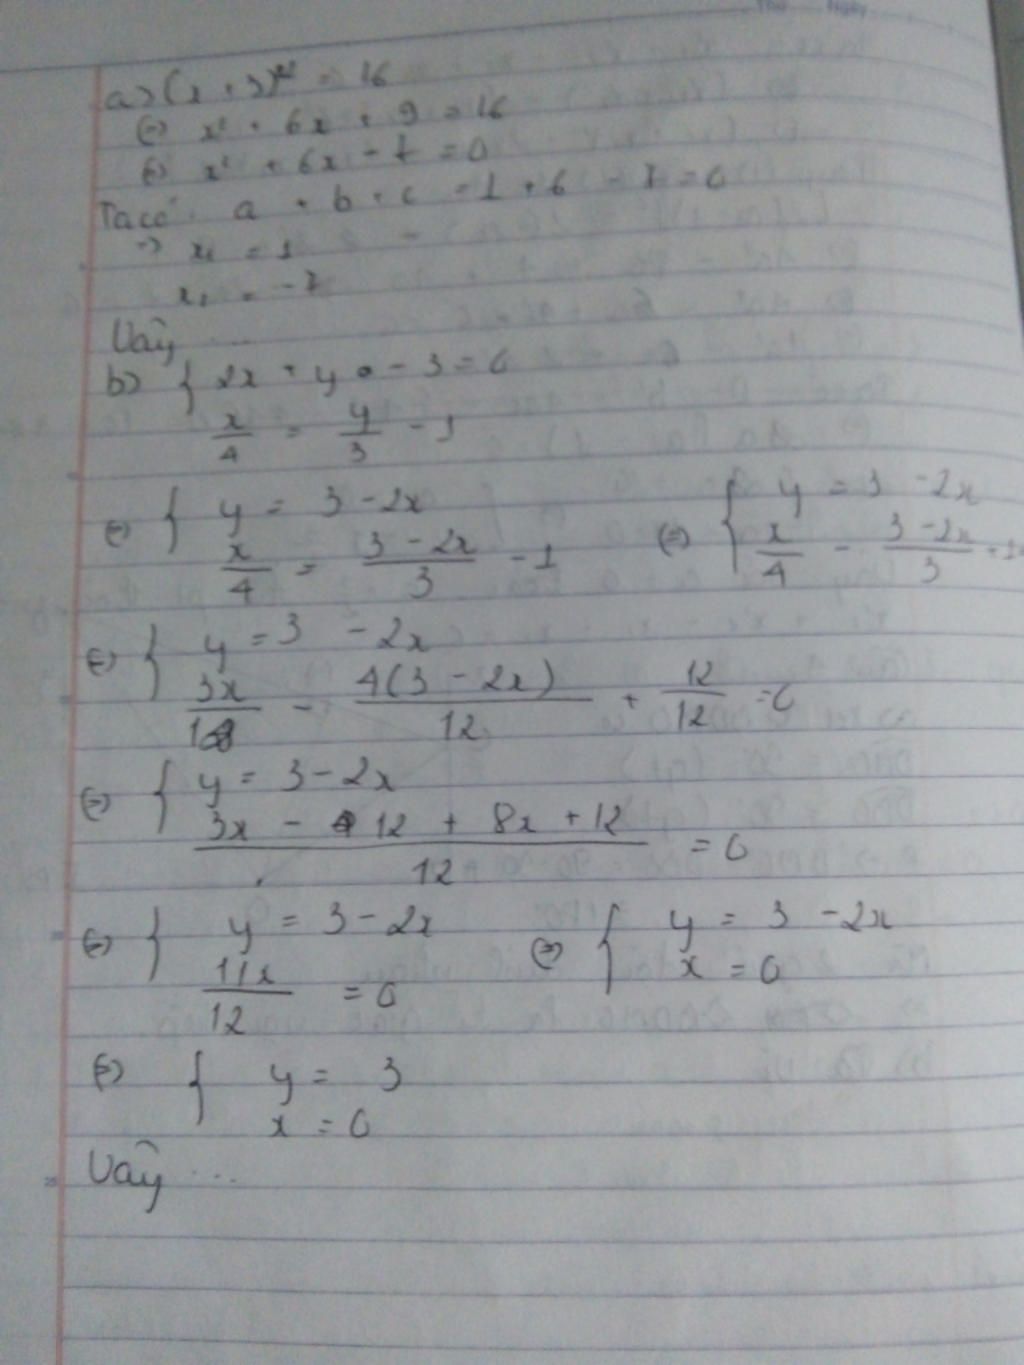 Thứ Ngày
a) (x + 3)² = 16
(=) x² + 6x + 9 = 16
(=) x² + 6x - 7 = 0
Ta có: a + b + c = 1 + 6 - 7 = 0
=) x₁ = 1
x₂ = -7
Vậy ...
b) { 2x + y - 3 = 0
x/4 = y/3 - 1
(=) { y = 3 - 2x
x/4 = (3 - 2x)/3 - 1
(=) { y = 3 - 2x
x/4 - (3 - 2x)/3 + 1 =
(=) { y = 3 - 2x
3x/12 - 4(3 - 2x)/12 + 12/12 = 0
(=) { y = 3 - 2x
(3x - 12 + 8x + 12)/12 = 0
(=) { y = 3 - 2x
11x/12 = 0
(=) { y = 3 - 2x
x = 0
(=) { y = 3
x = 0
Vậy ...
25